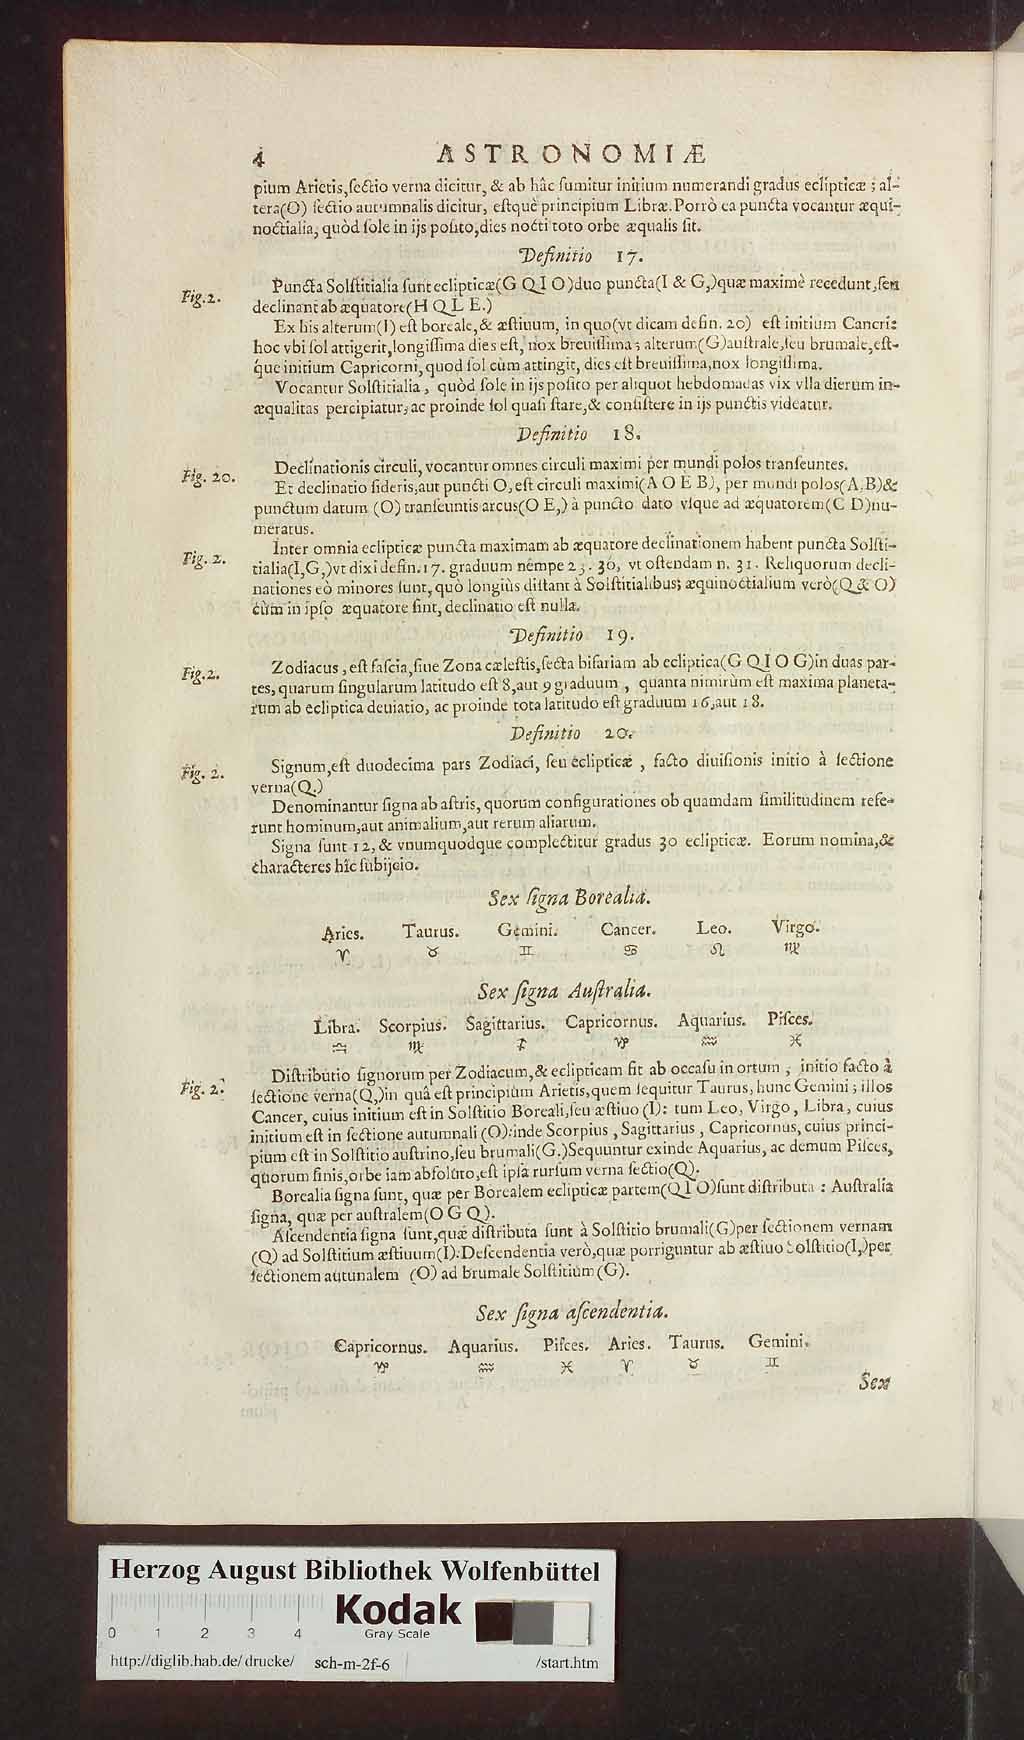 4 ASTRONOMIÆ
pium Arietis,ſectio verna dicitur, & ab hâc ſumitur initium numerandi gradus eclipticæ ; al-
tera(O) ſectio autumnalis dicitur, eſtquè principium Libræ. Porrò ea puncta vocantur æqui-
noctialia, quòd ſole in ijs poſito,dies nocti toto orbe æqualis ſit.
Definitio 17.
Fig.2. Puncta Solſtitialia ſunt eclipticæ(G Q I O)duo puncta(I & G,)quæ maximè recedunt,ſeu
declinant ab æquatore(H Q L E.)
Ex his alterum(I) eſt boreale,& æſtiuum, in quo(vt dicam defin. 20) eſt initium Cancri:
hoc vbi ſol attigerit,longiſſima dies eſt, nox breuiſſima; alterum(G)auſtrale,ſeu brumale,eſt-
que initium Capricorni,quod ſol cùm attingit, dies eſt breuiſſima,nox longiſſima.
Vocantur Solſtitialia , quòd ſole in ijs poſito per aliquot hebdomadas vix vlla dierum in-
æqualitas percipiatur, ac proinde ſol quaſi ſtare,& conſiſtere in ijs punctis videatur.
Definitio 18.
Declinationis circuli, vocantur omnes circuli maximi per mundi polos tranſeuntes.
Fig. 20. Et declinatio ſideris,aut puncti O,eſt circuli maximi(A O E B), per mundi polos(A,B)&
punctum datum (O) tranſeuntis arcus(O E,) à puncto dato vſque ad æquatorem(C D)nu-
meratus.
Inter omnia eclipticæ puncta maximam ab æquatore declinationem habent puncta Solſti-
Fig. 2. tialia(I,G,)vt dixi defin.17. graduum nempe 23. 30, vt oſtendam n. 31. Reliquorum decli-
nationes eò minores ſunt, quò longiùs diſtant à Solſtitialibus; æquinoctialium verò(Q & O)
cùm in ipſo æquatore ſint, declinatio eſt nulla.
Definitio 19.
Fig.2. Zodiacus , eſt faſcia,ſiue Zona cæleſtis,ſecta bifariam ab ecliptica(G Q I O G)in duas par-
tes, quarum ſingularum latitudo eſt 8,aut 9 graduum , quanta nimirùm eſt maxima planeta-
rum ab ecliptica deuiatio, ac proinde tota latitudo eſt graduum 16,aut 18.
Definitio 20.
Fig. 2. Signum,eſt duodecima pars Zodiaci, ſeu eclipticæ , facto diuiſionis initio à ſectione
verna(Q.)
Denominantur ſigna ab aſtris, quorum configurationes ob quamdam ſimilitudinem refe-
runt hominum,aut animalium,aut rerum aliarum.
Signa ſunt 12, & vnumquodque complectitur gradus 30 eclipticæ. Eorum nomina,&
characteres hîc ſubijcio.
Sex ſigna Borealia.
Aries. Taurus. Gemini. Cancer. Leo. Virgo.
♈ ♉ ♊ ♋ ♌ ♍
Sex ſigna Auſtralia.
Libra. Scorpius. Sagittarius. Capricornus. Aquarius. Piſces.
♎ ♏ ♐ ♑ ♒ ♓
Diſtributio ſignorum per Zodiacum,& eclipticam fit ab occaſu in ortum , initio facto à
Fig. 2. ſectione verna(Q,)in quâ eſt principium Arietis,quem ſequitur Taurus, hunc Gemini ; illos
Cancer, cuius initium eſt in Solſtitio Boreali,ſeu æſtiuo (I): tum Leo, Virgo , Libra , cuius
initium eſt in ſectione autumnali (O):inde Scorpius , Sagittarius , Capricornus, cuius princi-
pium eſt in Solſtitio auſtrino,ſeu brumali(G.)Sequuntur exinde Aquarius, ac demum Piſces,
quorum finis,orbe iam abſolûto,eſt ipſa rurſum verna ſectio(Q).
Borealia ſigna ſunt, quæ per Borealem eclipticæ partem(Q I O)ſunt diſtributa : Auſtralia
ſigna, quæ per auſtralem(O G Q).
Aſcendentia ſigna ſunt,quæ diſtributa ſunt à Solſtitio brumali(G)per ſectionem vernam
(Q) ad Solſtitium æſtiuum(I):Deſcendentia verò,quæ porriguntur ab æſtiuo Solſtitio(I,)per
ſectionem autunalem (O) ad brumale Solſtitium (G).
Sex ſigna aſcendentia.
Capricornus. Aquarius. Piſces. Aries. Taurus. Gemini.
♑ ♒ ♓ ♈ ♉ ♊
Sex
Herzog August Bibliothek Wolfenbüttel
Kodak
0 1 2 3 4 Gray Scale
http://diglib.hab.de/drucke/ sch-m-2f-6 /start.htm